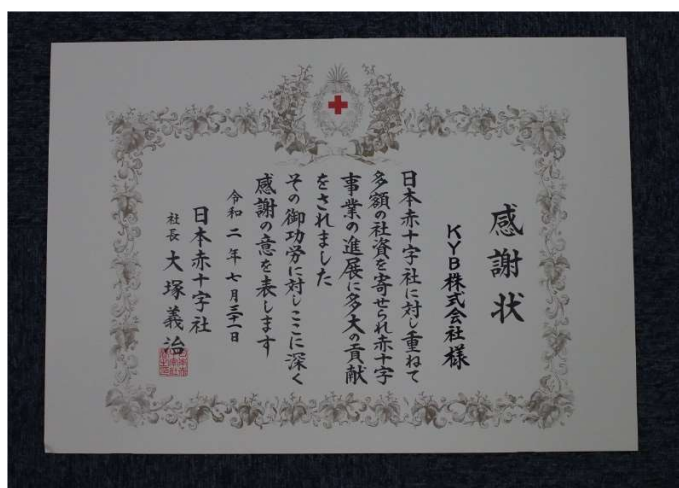 感謝状
KYB株式会社様
日本赤十字社に対し重ねて
多額の社資を寄せられ赤十字
事業の進展に多大の貢献
をされました
その御功労に対しここに深く
感謝の意を表します
令和二年七月三十一日
日本赤十字社
社長 大塚義治